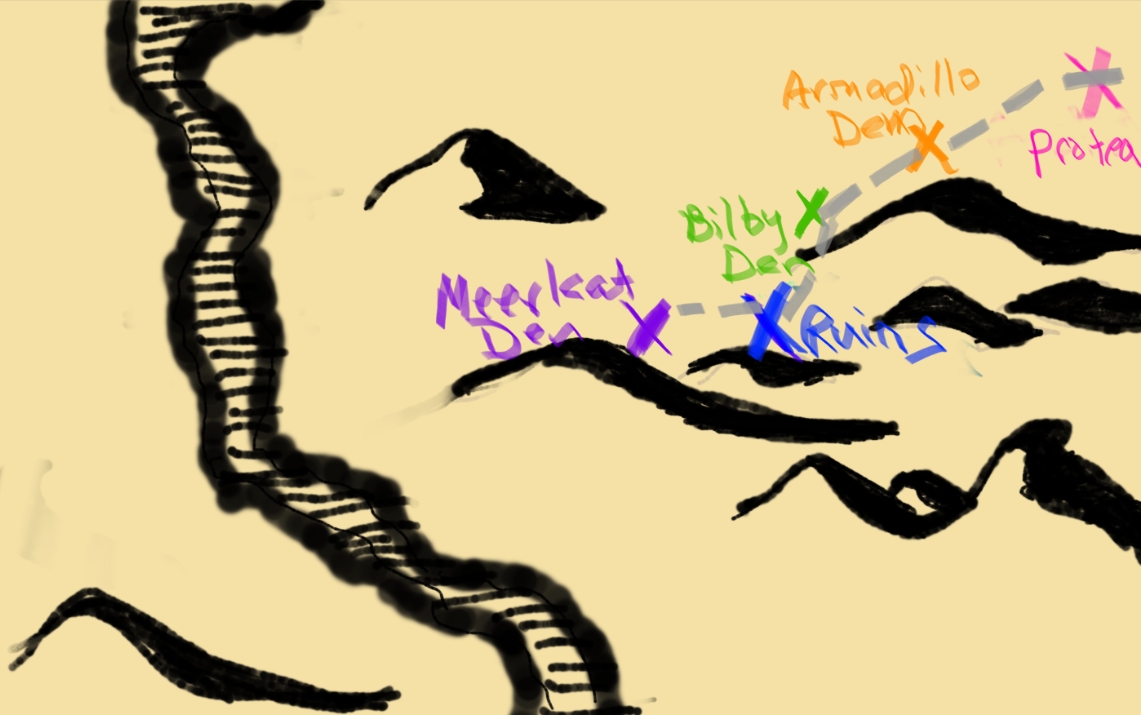 Armadillo
Den
Protea
Bilby
Den
Meerkat
Den
Ruins